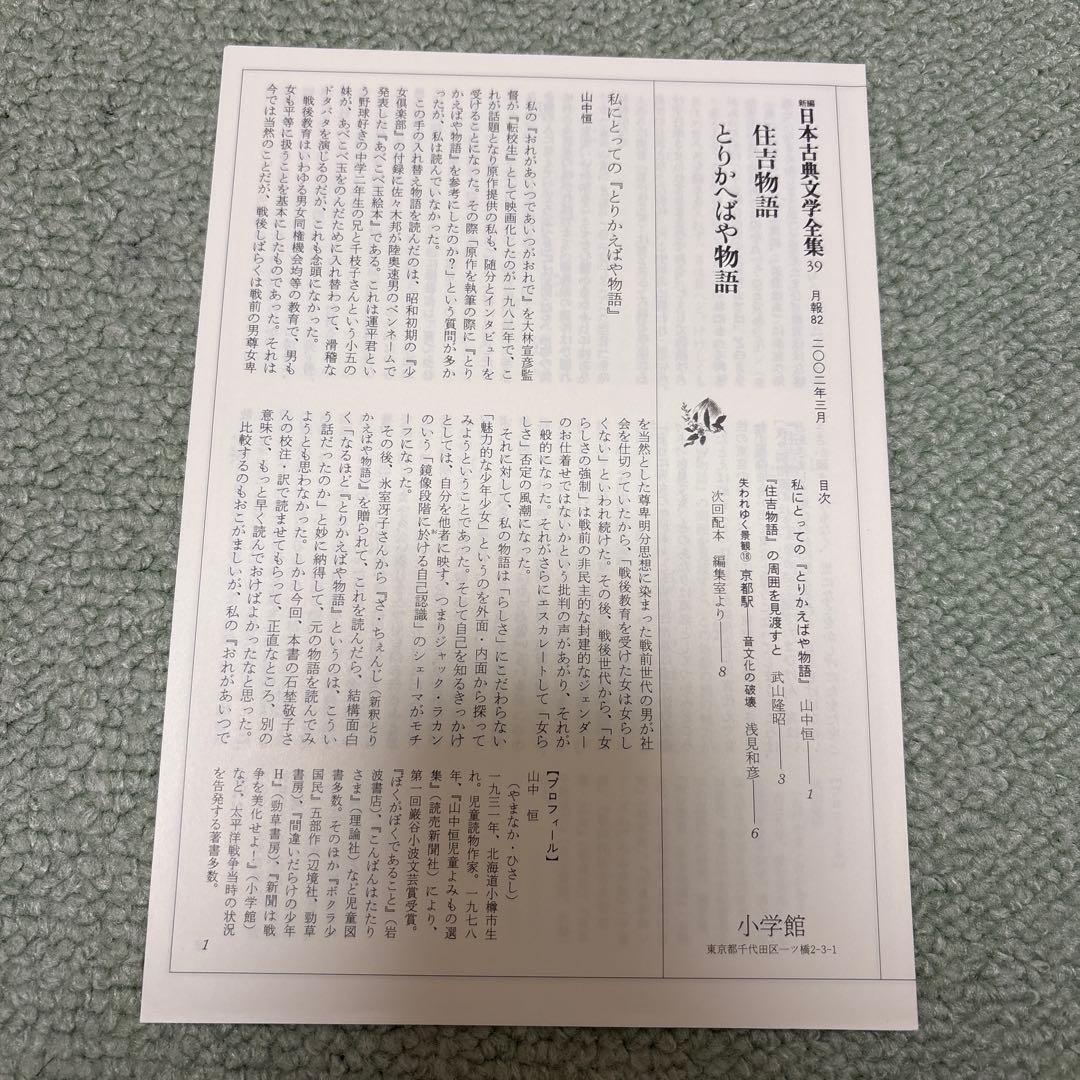 新編 日本古典文学全集 39 月報82 二〇〇二年三月
住吉物語
とりかへばや物語
目次
私にとっての『とりかえばや物語』 山中恒――1
『住吉物語』の周囲を見渡すと 武山隆昭――3
失われゆく景観⑱ 京都駅――音文化の破壊 浅見和彦――6
次回配本 編集室より――8
小学館
東京都千代田区一ツ橋2-3-1
私にとっての『とりかえばや物語』
山中恒
私の『おれがあいつであいつがおれで』を大林宣彦監
督が『転校生』として映画化したのが一九八二年で、こ
れが話題となり原作提供の私も、随分とインタビューを
受けることになった。その際「原作を執筆の際に『とり
かえばや物語』を参考にしたのか?」という質問が多か
ったが、私は読んでいなかった。
この手の入れ替え物語を読んだのは、昭和初期の『少
女俱楽部』の付録に佐々木邦が陸奥速男のペンネームで
発表した『あべこべ玉絵本』である。これは運平君とい
う野球好きの中学二年生の兄と千枝子さんという小五の
妹が、あべこべ玉をのんだために入れ替わって、滑稽な
ドタバタを演じるのだが、これも念頭になかった。
戦後教育はいわゆる男女同権機会均等の教育で、男も
女も平等に扱うことを基本にしたものであった。それは
今では当然のことだが、戦後しばらくは戦前の男尊女卑
を当然とした尊卑明分思想に染まった戦前世代の男が社
会を仕切っていたから、「戦後教育を受けた女は女らし
くない」といわれ続けた。その後、戦後世代から、「女
らしさの強制」は戦前の非民主的な封建的なジェンダー
のお仕着せではないかという批判の声があがり、それが
一般的になった。それがさらにエスカレートして「女ら
しさ」否定の風潮になった。
それに対して、私の物語は「らしさ」にこだわらない
「魅力的な少年少女」というのを外面・内面から探って
みようということであった。そして自己を知るきっかけ
としては、自分を他者に映す、つまりジャック・ラカン
のいう「鏡像段階に於ける自己認識」のシェーマがモチ
ーフになった。
その後、氷室冴子さんから『ざ・ちぇんじ(新釈とり
かえばや物語)』を贈られて、これを読んだら、結構面白
く「なるほど『とりかえばや物語』というのは、こうい
う話だったのか」と妙に納得して、元の物語を読んでみ
ようとも思わなかった。しかし今回、本書の石埜敬子さ
んの校注・訳で読ませてもらって、正直なところ、別の
意味で、もっと早く読んでおけばよかったなと思った。
比較するのもおこがましいが、私の『おれがあいつで
【プロフィール】
山中 恒
(やまなか・ひさし)
一九三一年、北海道小樽市生
れ。児童読物作家。一九七八
年、『山中恒児童よみもの選
集』(読売新聞社)により、
第一回巌谷小波文芸賞受賞。
『ぼくがぼくであること』(岩
波書店)、『こんばんはたたり
さま』(理論社)など児童図
書多数。そのほか『ボクラ少
国民』五部作(辺境社、勁草
書房)、『間違いだらけの少年
H』(勁草書房)、『新聞は戦
争を美化せよ!』(小学館)
など、太平洋戦争当時の状況
を告発する著書多数。
1